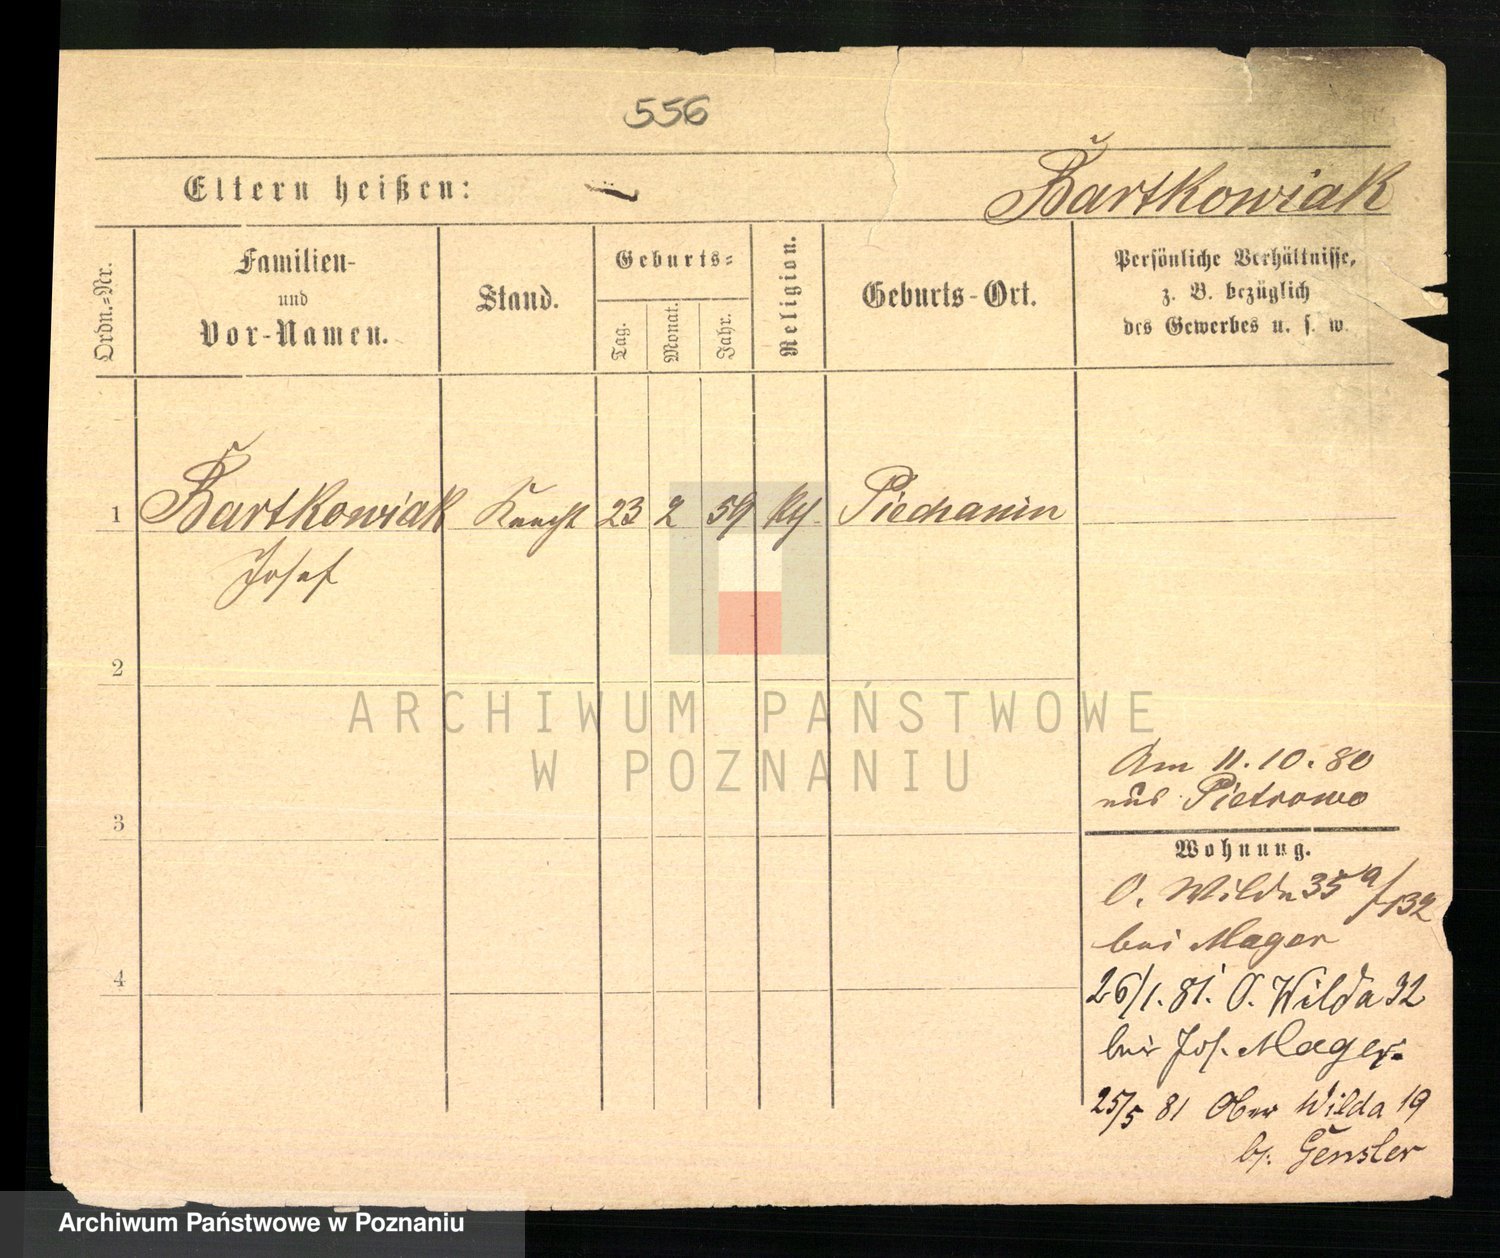 556
Eltern heißen:
Bartkowiak
Ordn.-Nr.
Familien-
und
Vor-Namen.
Stand.
Geburts-
Tag.
Monat.
Jahr.
Religion.
Geburts-Ort.
Persönliche Verhältnisse,
z. B. bezüglich
des Gewerbes u. s. w.
1 Bartkowiak Knecht 23 2 59 kth Piechanin
Josef
2
3
4
Am 11.10.80
aus Pietrowo
Wohnung.
O. Wilda 35a/132
bei Mager
26/1.81. O. Wilda 32
bei Jos. Mager.
25/5 81 Ober Wilda 19
b. Gensler
ARCHIWUM PAŃSTWOWE
W POZNANIU
Archiwum Państwowe w Poznaniu